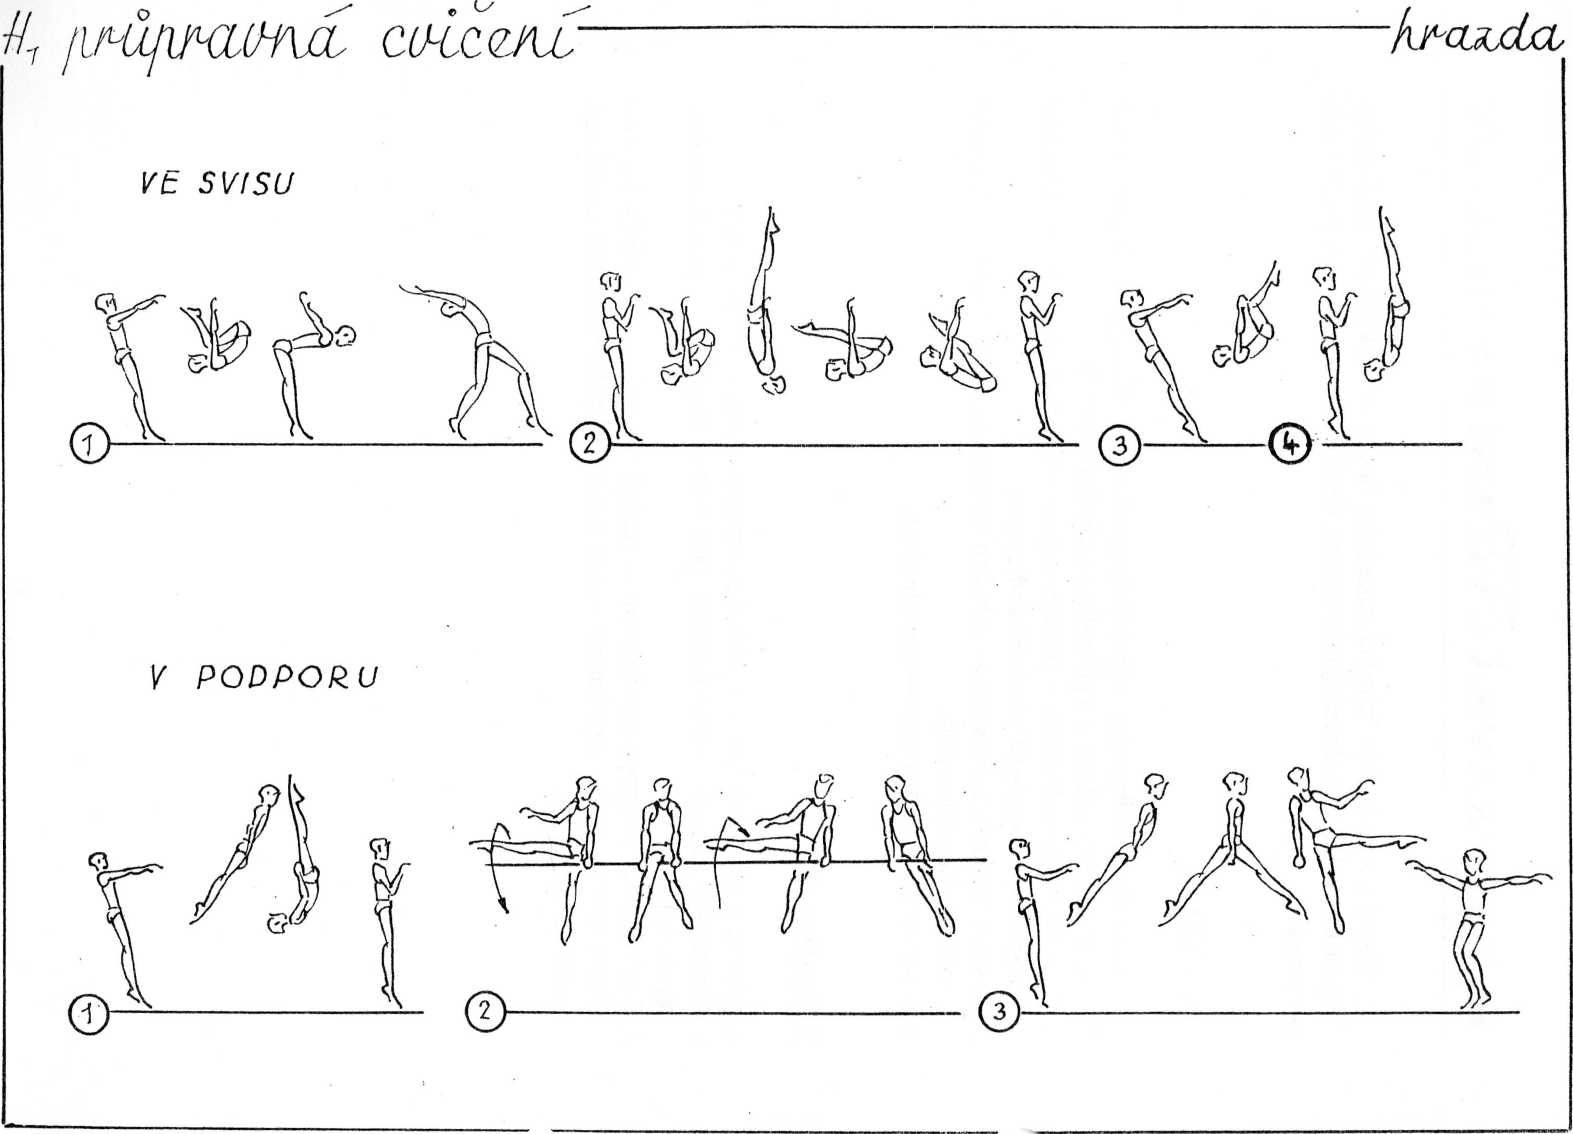 H₁ průpravná cvičení hrazda
VE SVISU
1 2 3 4
V PODPORU
1 2 3